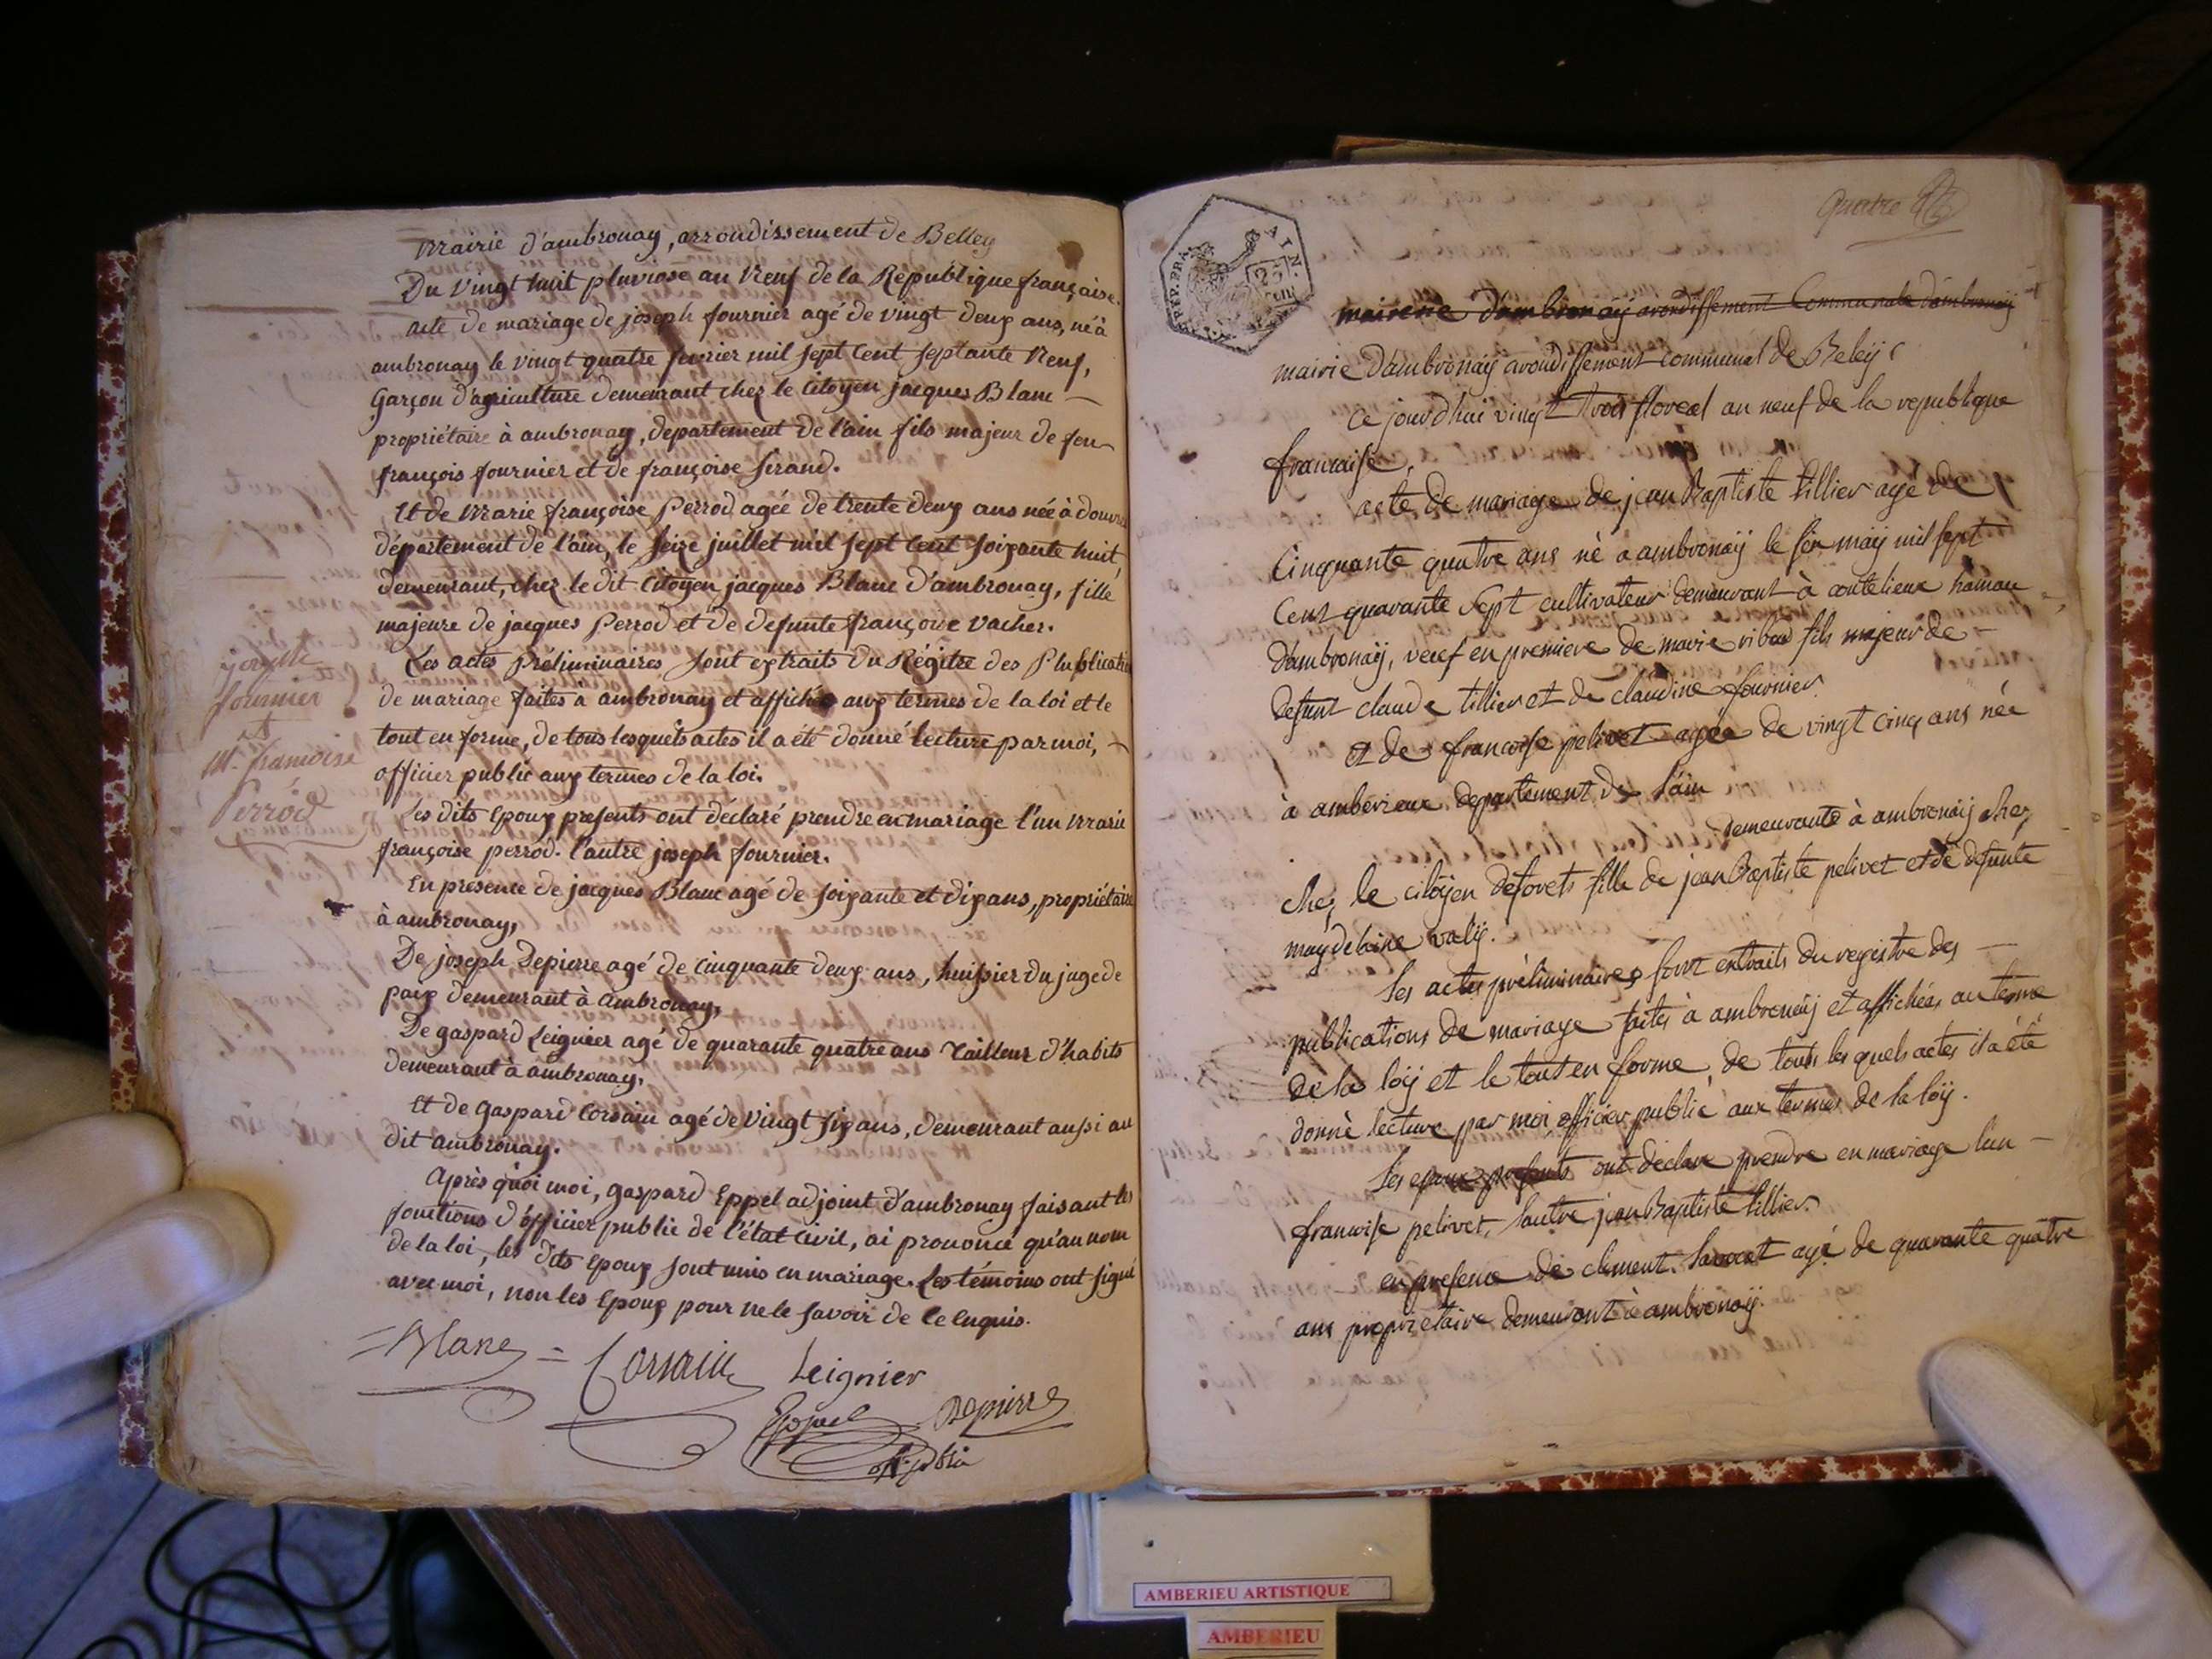 Mairie d'ambronay, arrondissement de Belley
Du Vingt huit pluviose an Neuf de la République française.
acte de mariage de joseph fournier agé de vingt deux ans, né à
ambronay le vingt quatre fevrier mil sept Cent septante Neuf,
Garçon d'agriculture demeurant chez le Citoyen jacques Blanc
propriétaire à ambronay, departement de l'ain fils majeur de feu
françois fournier et de françoise Sirand.
Et de Marie françoise Perrod agée de trente deux ans née à douvre
département de l'ain, le seize juillet mil sept Cent soixante huit,
demeurant, chez le dit Citoyen jacques Blanc d'ambronay, fille
majeure de jacques Perrod et de defunte françoise Vacher.
Les actes Préliminaires sont extraits du Régitre des Publicatio
de mariage faites a ambronay et affichés aux termes de la loi et le
tout en forme, de tous lesquels actes il a été donné lecture par moi,
officier public aux termes de la loi.
Les dits Epoux presents ont déclaré prendre en mariage l'un Marie
françoise perrod. l'autre joseph fournier.
En présence de jacques Blanc agé de soixante et dix ans, propriétaire
à ambronay,
De joseph Depierre agé de Cinquante deux ans, huissier du juge de
paix demeurant à ambronay,
De gaspard Leignier agé de quarante quatre ans Tailleur d'habits
demeurant à ambronay,
Et de Gaspard Corsain agé de Vingt six ans, demeurant aussi au
dit ambronay.
Après quoi moi, Gaspard Eppel adjoint d'ambronay faisant les
fonctions d'officier public de l'état Civil, ai prononcé qu'au nom
de la loi, les dits Epoux sont unis en mariage. Les témoins ont signé
avec moi, non les Epoux pour ne le savoir de ce enquis.
joseph
fournier
et
M.e francoise
Perrod
Blanc Corsain Leignier
Eppel Depierre
off. public
Quatre
PRA AIN.
25
mairerie d'ambronaÿ arondissement Communale d'ambronaÿ
mairie d'ambronaÿ arondissement communal de Beleÿ
ce jourd'hui vingt trois floreal an neuf de la republique
francaise
acte de mariage de jean Baptiste tillier agé de
Cinquante quatre ans né a ambronaÿ le six maÿ mil sept
Cent quarante Sept cultivateur demeurant à coutelieux hamau
d'ambronaÿ, veuf en premiere de marie ribod fils majeur de
defunt claude tillier et de claudine fournier.
et de francoise pelivet agée de vingt cinq ans née
à amberieux departement de l'ain
demeurante à ambronaÿ chez
chez le citoÿen deforets fille de jean Baptiste pelivet et de defunte
magdeleine valÿ.
les actes préliminaires sont extraits du registre des
publications de mariage faites à ambronaÿ et affichées au terme
de la loÿ et le tout en forme, de touts les quels actes il a été
donné lecture par moi officier public aux termes de la loÿ.
les epoux presents ont declare prendre en mariage l'un
francoise pelivet, lautre jean Baptiste tillier.
en presence de clement Savarat agé de quarante quatre
ans proprietaire demeurant à ambronaÿ.
AMBERIEU ARTISTIQUE
AMBERIEU